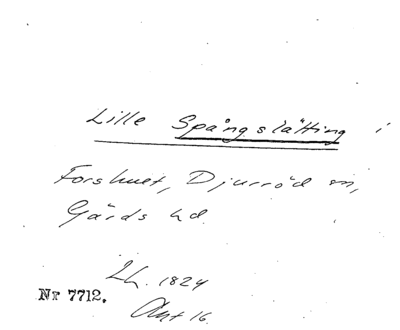 Lille Spångslätting i
Forshult, Djurröd sn,
Gärds hd.
Lh. 1824
Nr 7712.
Akt 16